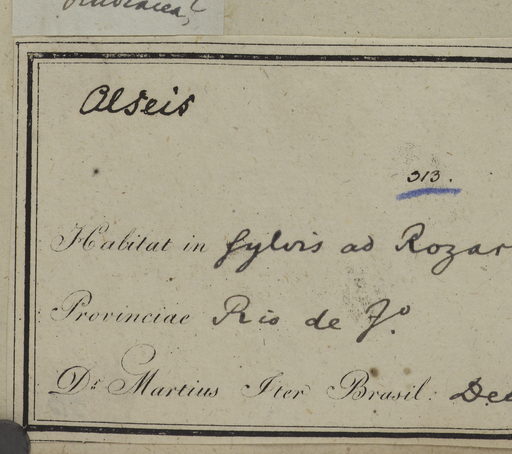 Alseis
313.
Habitat in sylvis ad Rozar
Provinciae Rio de Jº
Dr Martius Iter Brasil: Dec